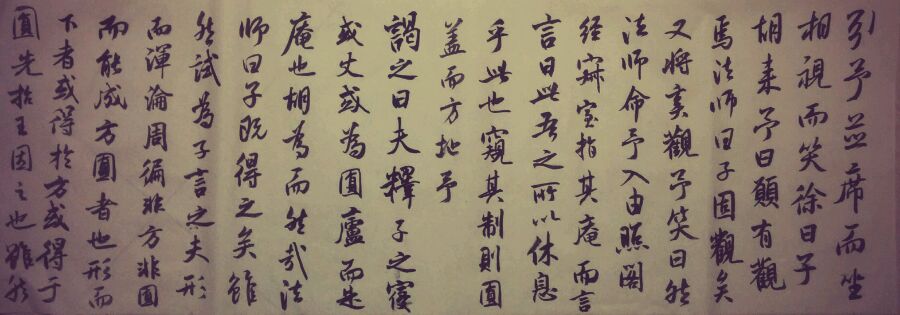 引予並席而坐
相視而笑徐曰子
胡来予曰願有觀
焉法师曰子固觀矣
又將奚觀予笑曰然
法师命予入由照閣
經寂室指其庵而言
言曰此吾之所以休息
乎此也窺其制則圓
蓋而方地予
謁之曰夫釋子之寢
或丈或為圓廬而是
庵也胡為而然哉法
师曰子既得之矣雖
然試為子言之夫形
而渾淪周徧非方非圓
而能成方圓者也形而
下者或得於方或得于
圓先王因之也雖然